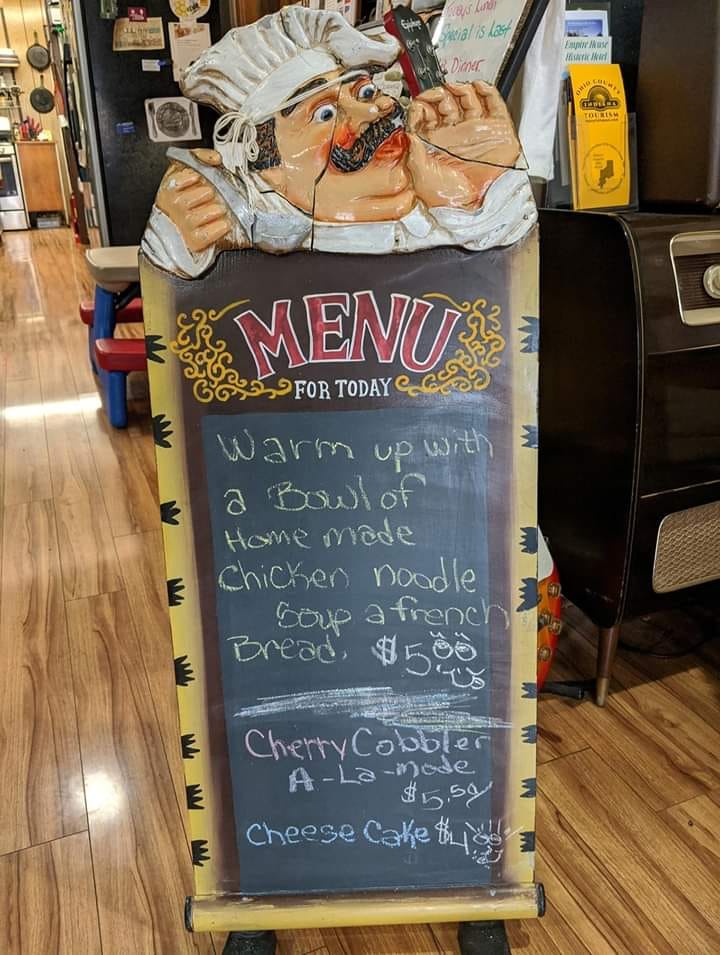 Epiphone
Special is Last
Dinner
Empire House
Historic Hotel
OHIO COUNTY
INDIANA
TOURISM
MENU
FOR TODAY
Warm up with
a Bowl of
Home made
Chicken noodle
Soup a french
Bread. $5.00
Cherry Cobbler
A-La-mode
$5.50
Cheese Cake $4.00